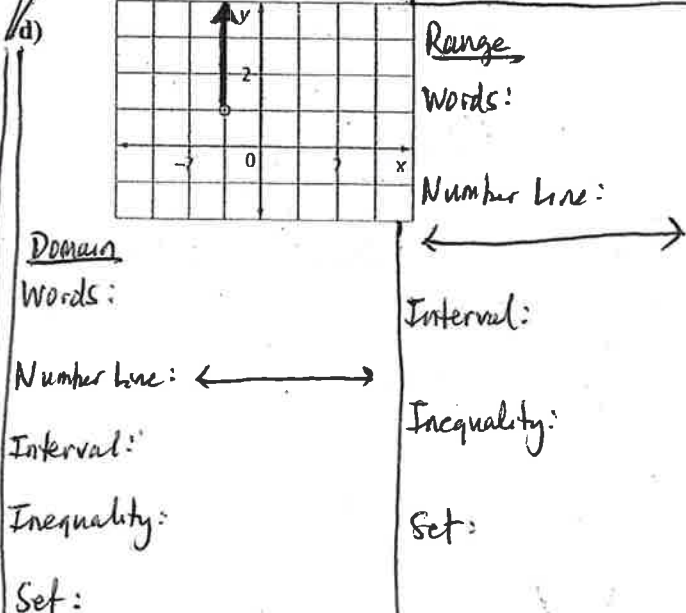 d)
y
2
-2
0
2
x
Domain
Words:
Number Line:
Interval:
Inequality:
Set:
Range
Words:
Number Line:
Interval:
Inequality:
Set: